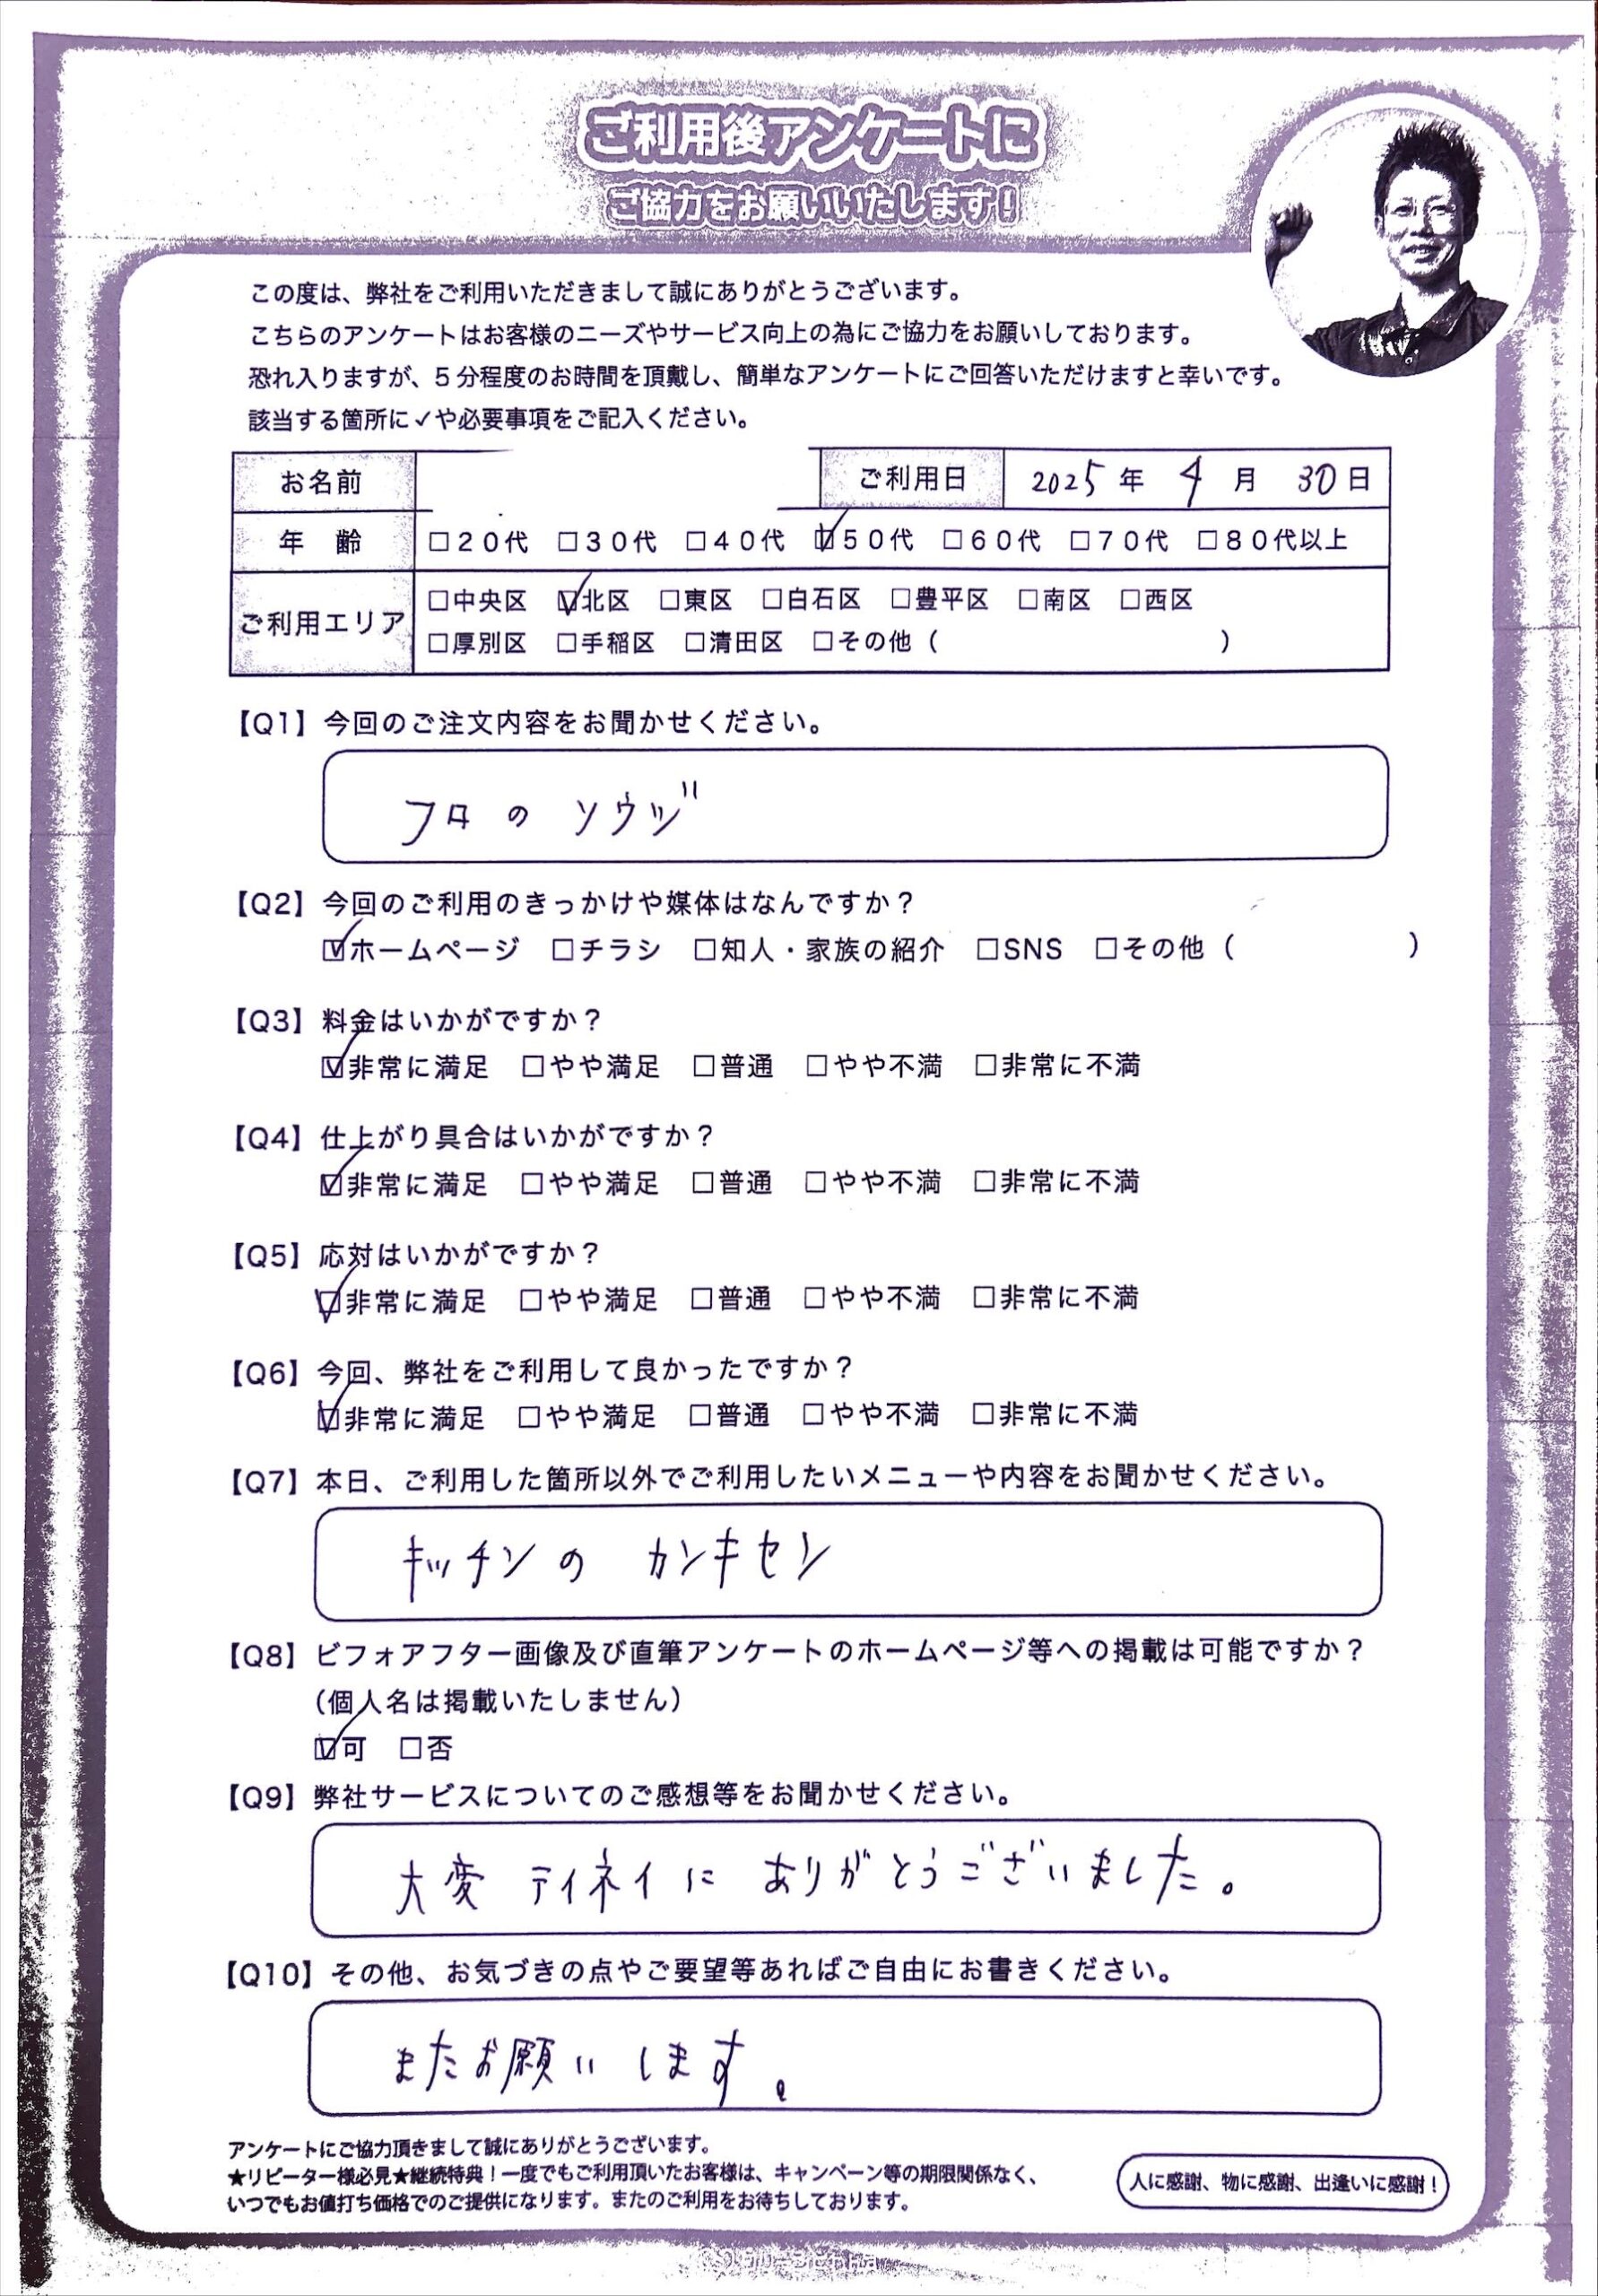 ご利用後アンケートに
ご協力をお願いいたします!
この度は、弊社をご利用いただきまして誠にありがとうございます。
こちらのアンケートはお客様のニーズやサービス向上の為にご協力をお願いしております。
恐れ入りますが、5分程度のお時間を頂戴し、簡単なアンケートにご回答いただけますと幸いです。
該当する箇所に✓や必要事項をご記入ください。
お名前 ご利用日 2025年 4月 30日
年 齢 □20代 □30代 □40代 ☑50代 □60代 □70代 □80代以上
ご利用エリア □中央区 ☑北区 □東区 □白石区 □豊平区 □南区 □西区
□厚別区 □手稲区 □清田区 □その他( )
【Q1】今回のご注文内容をお聞かせください。
フロの ソウジ
【Q2】今回のご利用のきっかけや媒体はなんですか?
☑ホームページ □チラシ □知人・家族の紹介 □SNS □その他( )
【Q3】料金はいかがですか?
☑非常に満足 □やや満足 □普通 □やや不満 □非常に不満
【Q4】仕上がり具合はいかがですか?
☑非常に満足 □やや満足 □普通 □やや不満 □非常に不満
【Q5】応対はいかがですか?
☑非常に満足 □やや満足 □普通 □やや不満 □非常に不満
【Q6】今回、弊社をご利用して良かったですか?
☑非常に満足 □やや満足 □普通 □やや不満 □非常に不満
【Q7】本日、ご利用した箇所以外でご利用したいメニューや内容をお聞かせください。
キッチンの カンキセン
【Q8】ビフォアフター画像及び直筆アンケートのホームページ等への掲載は可能ですか?
(個人名は掲載いたしません)
☑可 □否
【Q9】弊社サービスについてのご感想等をお聞かせください。
大変 テイネイに ありがとうございました。
【Q10】その他、お気づきの点やご要望等あればご自由にお書きください。
またお願い します。
アンケートにご協力頂きまして誠にありがとうございます。
★リピーター様必見★継続特典!一度でもご利用頂いたお客様は、キャンペーン等の期限関係なく、
いつでもお値打ち価格でのご提供になります。またのご利用をお待ちしております。
人に感謝、物に感謝、出逢いに感謝!